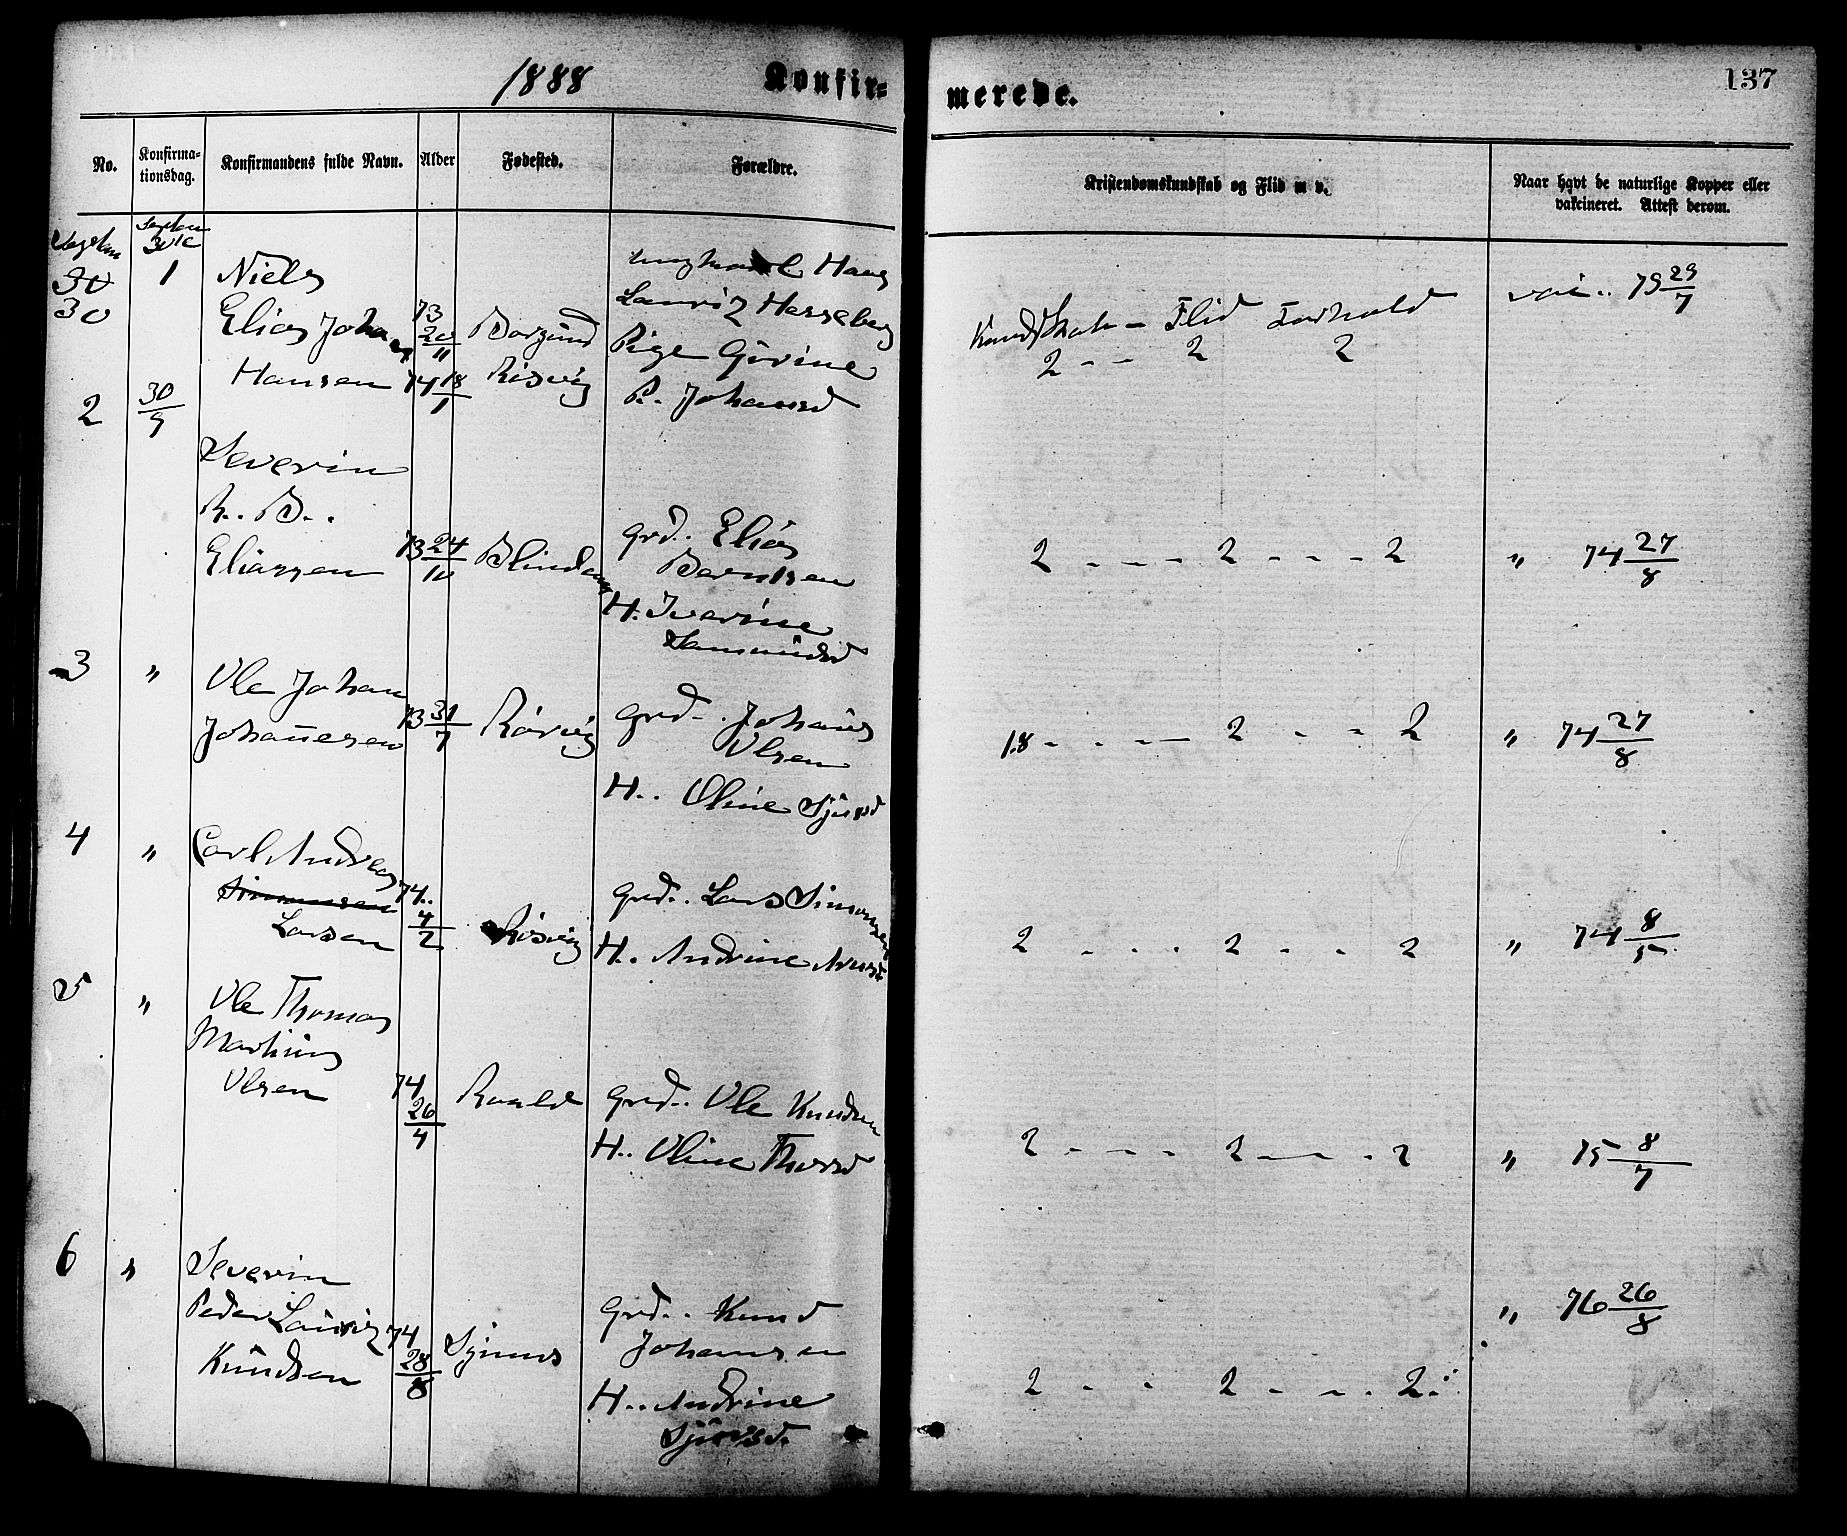 1888 Konfir=
merede.
137
No.
Konfirma-
tionsdag.
Konfirmandens fulde Navn.
Alder
Fødested.
Forældre.
Kristendomskundskab og Flid m v.
Naar havt de naturlige Kopper eller
vakcineret. Attest derom.
30
30
1 Niels
Elias Johan
Hansen
73
20/11
74 18/1
Borgund
Risvig
Hans
Lauriz Hesseberg
Pige Gurine
P. Johansd
Kundskab - Flid Forhold
2 - - 2 2
vac.. 75 29/7
2 30/9
Severin
R.. B..
Eliassen 73 24/10 Blindem
Grd.. Elias
Berntsen
H. Iverine
2 - - - 2 - - - 2 " 74 27/8
3 " Ole Johan
Johannesen 73 31/7 Rørvig
Grd.. Johans
Olsen
H.. Oline Sjursd
1.8 - - - - 2 - - 2 " 74 27/8
4 " Carl Andreas
Simonsen
Larsen
74..
4/2
Risvig
Grd.. Lars Simonsen
H.. Andrine
2 - - - 2 - - 2 " 74 8/5
5 " Ole Thomas
Martinus
Olsen
74
26/4
Roald
Grd.. Ole Knudsen
H.. Oline
2 - - - 2 - - - 2 " 75 8/7
6 " Severin
Peder Lauriz
Knudsen
74
28/8
Grd.. Knud
Johansen
H.. Andrine
Sjursd.
2 - - 2 - - - 2. " 76 26/8